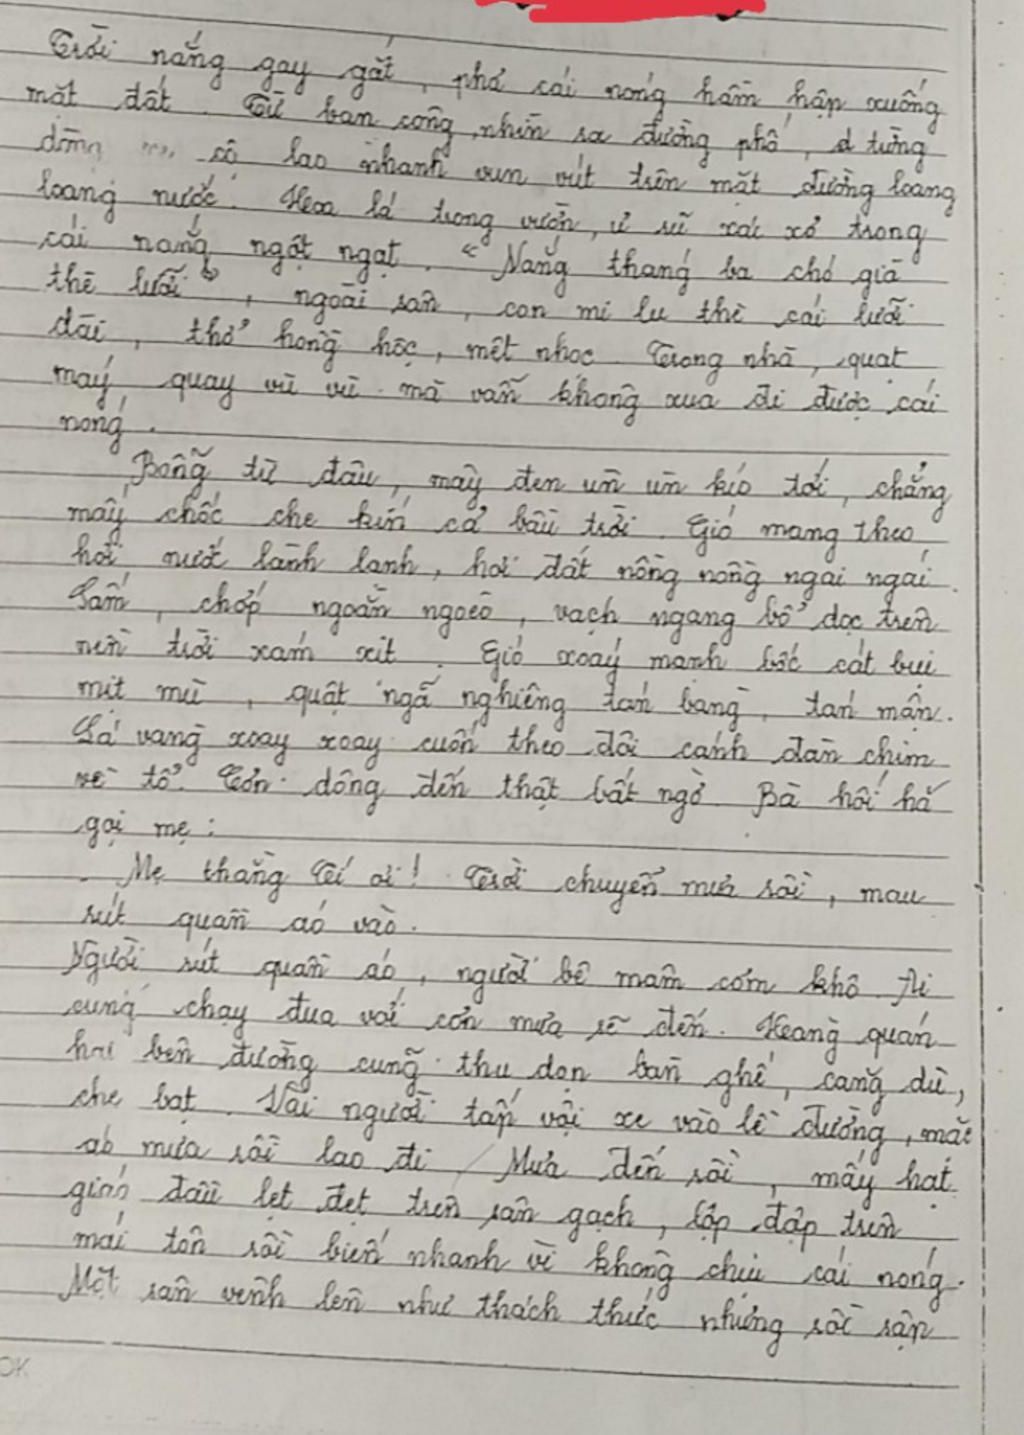 Trời nắng gay gắt, phả cái nóng hầm hập xuống
mặt đất. Từ ban công nhìn ra đường phố, từng
dòng cộ lao nhanh vun vút trên mặt đường loang
loang nước. Hoa lá trong vườn, ủ rũ xác xơ trong
cái nắng ngột ngạt. "Nắng tháng ba chó già
thè lưỡi", ngoài sân, con mi lu thè cái lưỡi
dài, thở hồng hộc, mệt nhọc. Trong nhà, quạt
máy quay vù vù mà vẫn không xua đi được cái
nóng.
Bỗng từ đâu, mây đen ùn ùn kéo tới, chẳng
mấy chốc che kín cả bầu trời. Gió mang theo
hơi nước lành lạnh, hơi đất nồng nồng ngai ngái.
Sấm, chớp ngoằn ngoèo, vạch ngang bổ dọc trên
nền trời xám xịt. Gió xoáy mạnh bốc cát bụi
mịt mù, quật ngã nghiêng tán bàng, tán mận.
Lá vàng xoay xoay cuốn theo đôi cánh đàn chim
về tổ. Cơn dông đến thật bất ngờ. Bà hối hả
gọi mẹ:
- Mẹ thằng Tí ơi! Trời chuyển mưa rồi, mau
rút quần áo vào.
Người rút quần áo, người bê mâm cơm khô. Ai
cũng chạy đua với cơn mưa sẽ đến. Hàng quán
hai bên đường cũng thu dọn bàn ghế, căng dù,
che bạt. Vài người tấp vội xe vào lề đường, mặc
áo mưa rồi lao đi. Mưa đến rồi, mấy hạt
giáo đầu lẹt đẹt trên sân gạch, lộp độp trên
mái tôn rồi biến nhanh vì không chịu cái nóng.
Mặt sân vênh lên như thách thức nhưng rồi sậm
OK